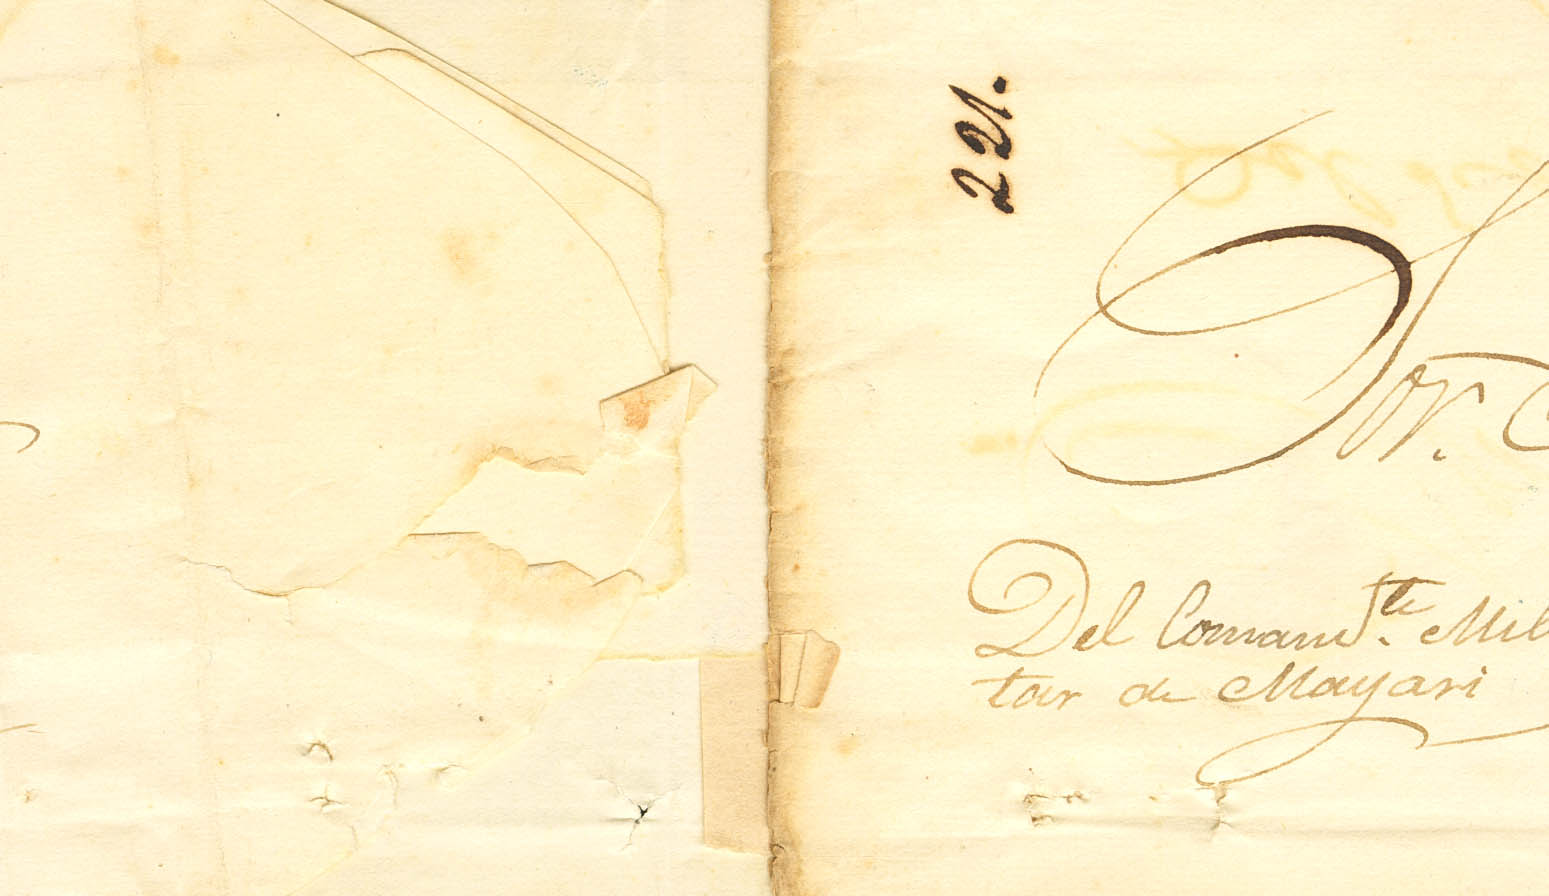 221.
Sor. C
Del Comand.te Mili
tar de Mayari